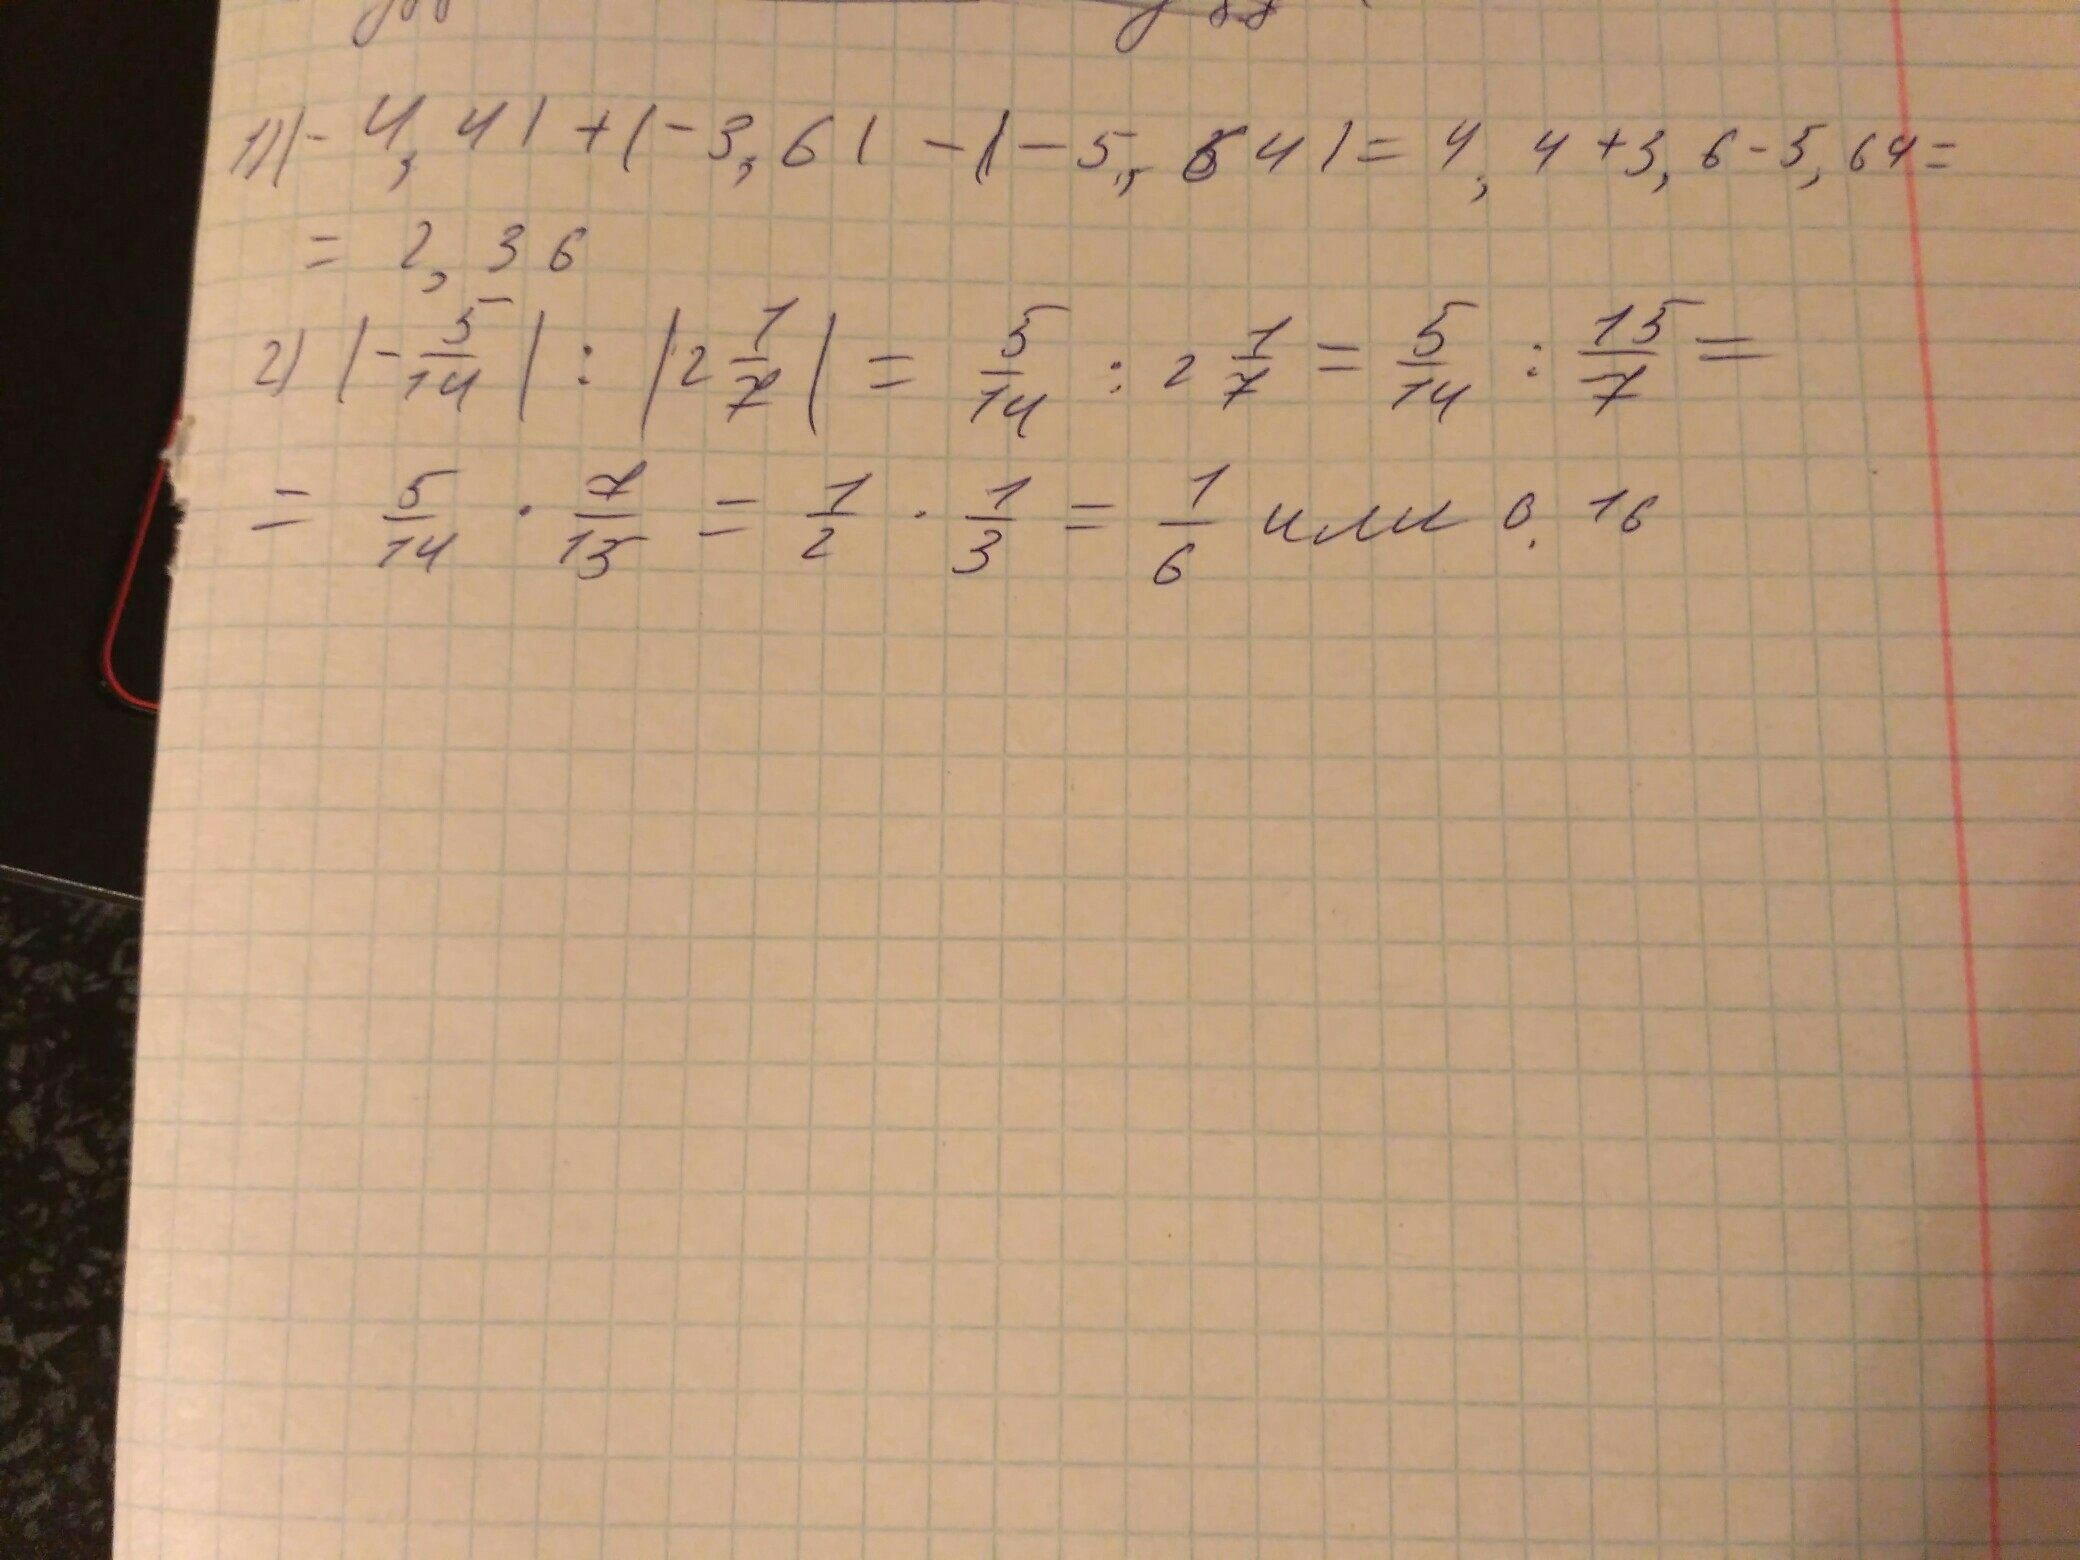 1) |-4,4| + |-3,6| - |-5,64| = 4,4 + 3,6 - 5,64 =
= 2,36
2) |-5/14| : |2 1/7| = 5/14 : 2 1/7 = 5/14 : 15/7 =
= 5/14 · 7/15 = 1/2 · 1/3 = 1/6 или 0,16